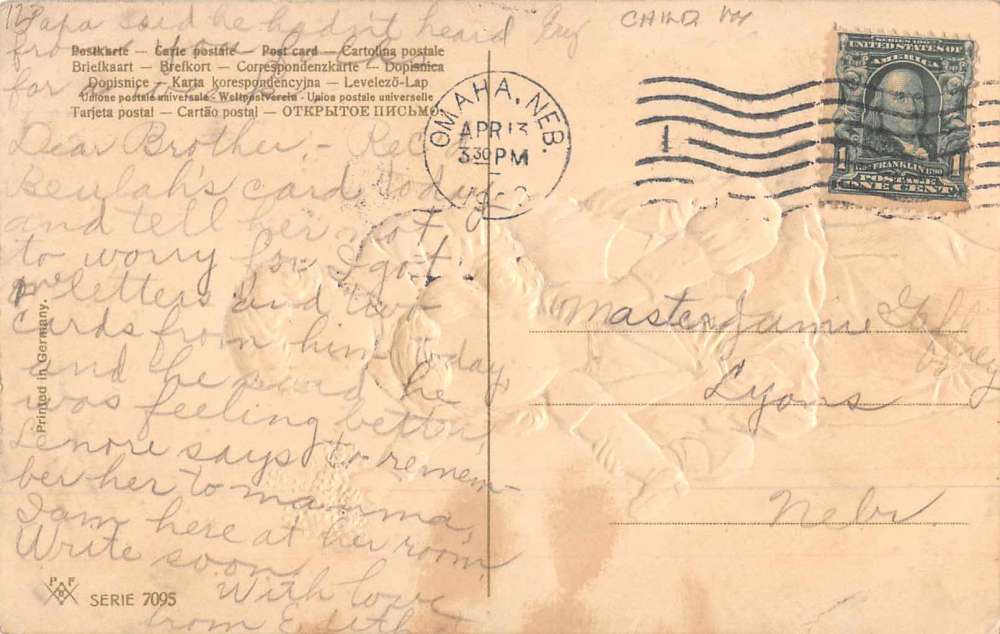 Papa said he hadn't heard
from
for
Postkarte — Carte postale — Post card — Cartolina postale
Briefkaart — Brefkort — Correspondenzkarte — Dopisnica
Dopisnice — Karta korespondencyjna — Levelező-Lap
Unione postale universale - Weltpostverein - Union postale universelle
Tarjeta postal — Cartão postal — ОТКРЫТОЕ ПИСЬМО
Dear Brother, - Rec
Beulah's card today
and tell her not
to worry for I got
letters and two
cards from him today,
and he said he
was feeling better,
Lenore says to remem-
ber her to mamma,
I am here at her room,
Write soon,
With love
from Edith
Printed in Germany.
PFB
SERIE 7095
CHILD
OMAHA, NEB.
APR 13
3 30 PM
1
SERIES 1902
UNITED STATES OF
AMERICA
FRANKLIN
1 1
POSTAGE
ONE CENT
Master Jamie
Lyons
Nebr.